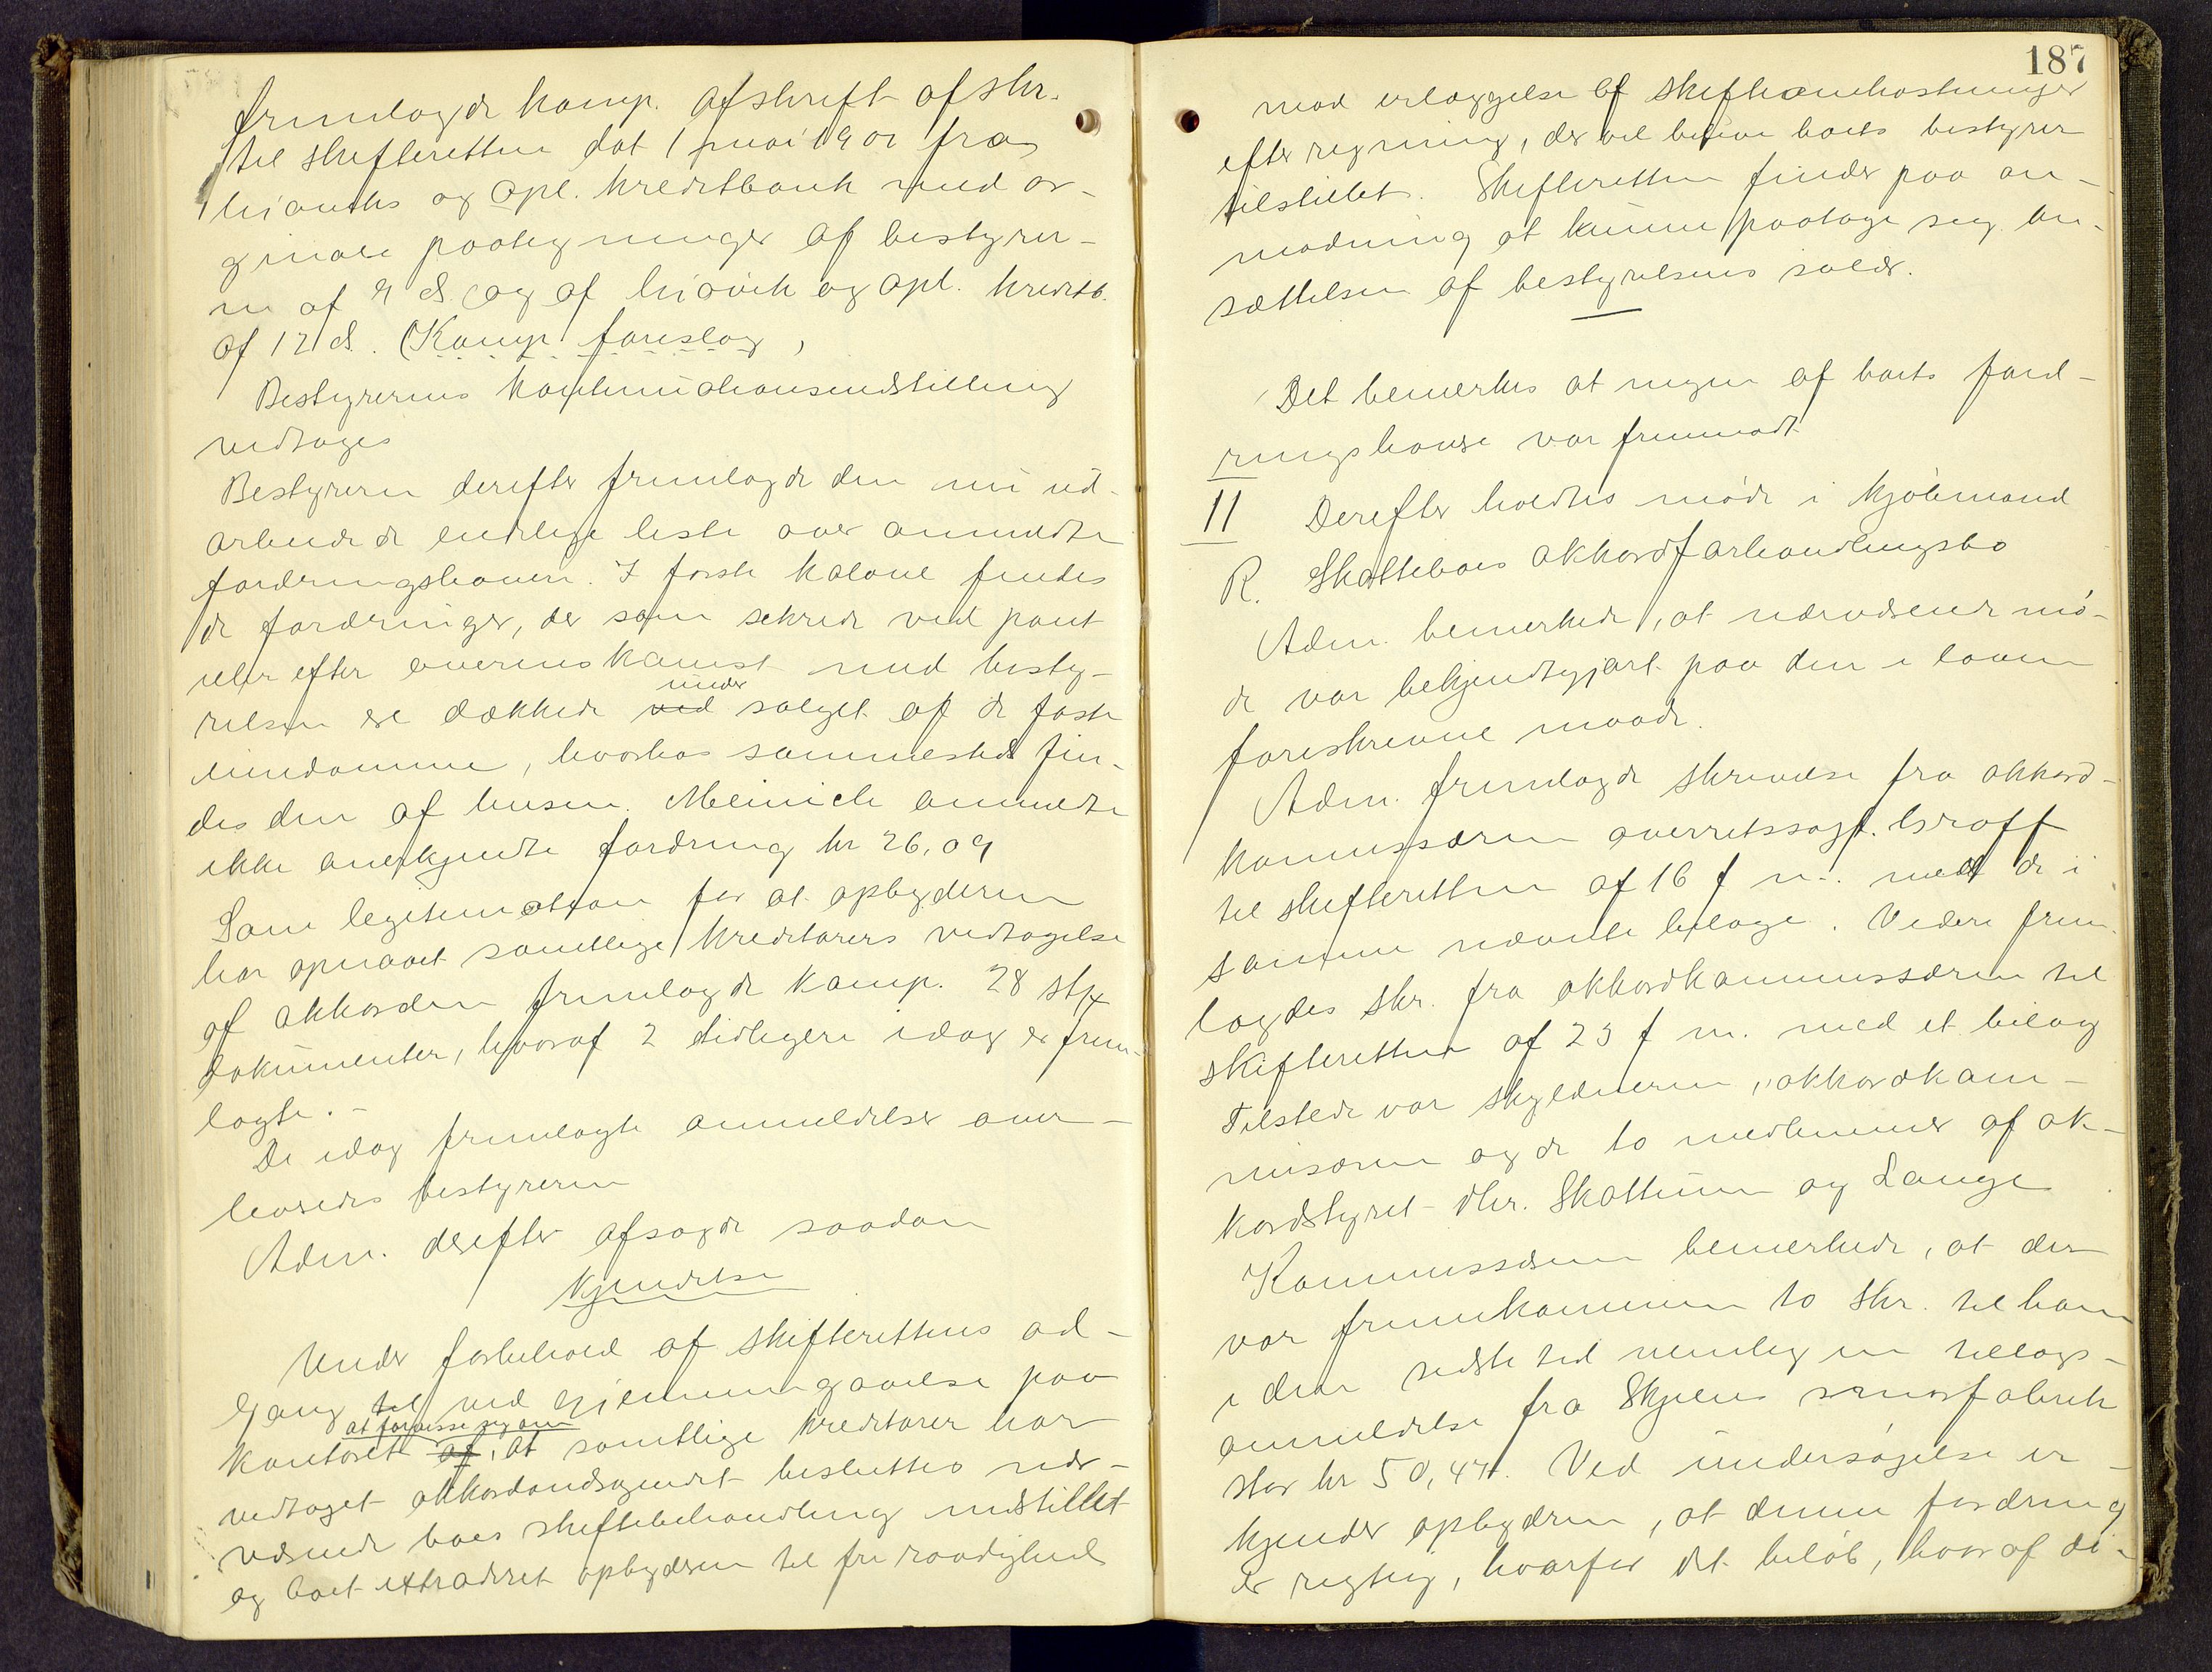 fremlagde komp. afskrift af skr.
til skifteretten dat 1 mai 1901 fra
kiauths og Opl. Kreditbank med or-
ginale paategninger af bestyrer-
en af 9 ds. og af hiavik og Opl. Kreditb.
af 12 ds. (Komp. foreslag,
Bestyrerens kontinuationsindstilling
vedtages
Bestyreren derefter fremlagde den nu ud-
arbeidede endelige liste over anmeldte
fordringshavere. I første kolone findes
de fordringer, der som sikrede ved pant
eller efter overenskomst med besty-
relsen ere dækkede under salget af de faste
eiendomme, hvorhos sammesteds fin-
des den af husm. Meinich anmeldte
ikke anerkjendte fordring kr 26,09
Som legitimation for at opbyderen
har opnaaet samtlige kreditorers vedtagelse
af akkorden fremlagde komp. 28 stk
dokumenter, hvoraf 2 tidligere idag er frem-
lagte. -
De idag fremlagte anmeldelser over-
leveredes bestyreren
Adm. derefter afsagde saadan
Kjendelse
Under forbehold af skifterettens ad-
gang til ved gjennemgaaelse paa
kontoret at forvisse sig om, at samtlige kreditorer har
vedtaget akkordandragendet besluttes nær-
værende boes skiftebehandling indstillet
og boet extraderet opbyderen til fri raadighed
187
mod erlæggelse af skifteomkostninger
efter regning, der vil blive boets bestyrer
tilstillet. Skifteretten finder paa an-
modning at kunne paatage sig an-
sættelsen af bestyrelsens salær.
Det bemerkes at ingen af boets ford-
ringshavere var fremmødt
11 Derefter holdtes møde i kjøbmand
R. Skattebøes akkordforhandlingsbo
Adm. bemerkede, at nærværende mø-
de var bekjendtgjort paa den i loven
foreskrevne maade.
Adm. fremlagde skrivelse fra akkord-
kommissæren overretssagf. Graff
til skifteretten af 16 f m. med de i
samme nævnte bilage. Videre frem-
lagdes skr. fra akkordkommissæren til
skifteretten af 23 f m. med et bilag
Tilstede var skyldneren, akkordkom-
missæren og de to medlemmer af ak-
kordstyret - dhr. Skattum og Lange
Kommissæren bemerkede, at der
var fremkommen to skr. til ham
i den sidste tid nemlig en tillægs-
anmeldelse fra Skjens smørfabrik
stor kr 50,44. Ved undersøgelse er-
kjender opbyderen, at denne fordring
er rigtig, hvorfor det beløb, hvoraf di-